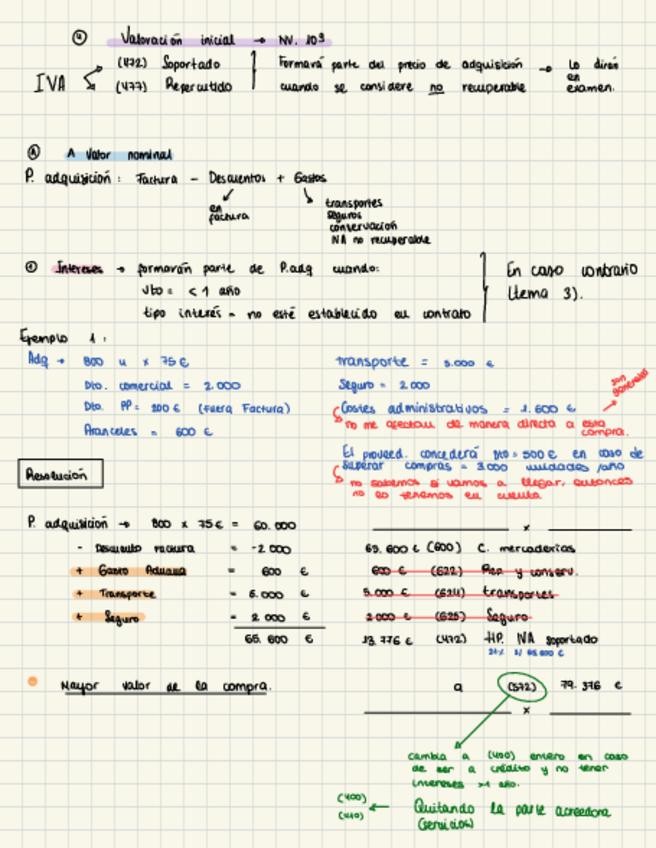 ④ Valoración inicial → NV. 10ª
IVA
(472) Soportado
(477) Repercutido
Formará parte del precio de adquisición
cuando se considere no recuperable
→ lo dirán
en
examen.
A valor nominal
P. adquisición : Factura - Descuentos + Gastos
en
factura
transportes
seguros
conservación
IVA no recuperable
Intereses → formarán parte de P.adq cuando:
Vto = < 1 año
tipo interés = no esté establecido en contrato
En caso contrario
(tema 3).
Ejemplo 1:
Adq → 800 u x 75 €
Dto. comercial = 2.000
Dto. PP = 200 € (fuera Factura)
Aranceles = 600 €
transporte = 5.000 €
Seguro = 2.000
Costes administrativos = 1.600 €
son generales
no me afectan de manera directa a esta
compra.
El proveed. concederá Dto = 500 € en caso de
superar compras = 3.000 unidades /año
no sabemos si vamos a llegar, entonces
no lo tenemos en cuenta
Resolución
P. adquisición → 800 x 75 € = 60.000
- Descuento factura = -2 000
+ Gasto Aduana = 600 €
+ Transporte = 5.000 €
+ Seguro = 2.000 €
65.600 €
x
65.600 € (600) C. mercaderías
600 € (622) Rep y conserv.
5.000 € (624) transportes
2.000 € (625) Seguro
13.776 € (472) HP. IVA soportado
21% s/ 65.600 €
Mayor valor de la compra.
a (572) 79.376 €
x
cambia a (400) entero en caso
de ser a crédito y no tener
intereses >1 año.
(400)
(410)
← Quitando la parte acreedora
(servicios)